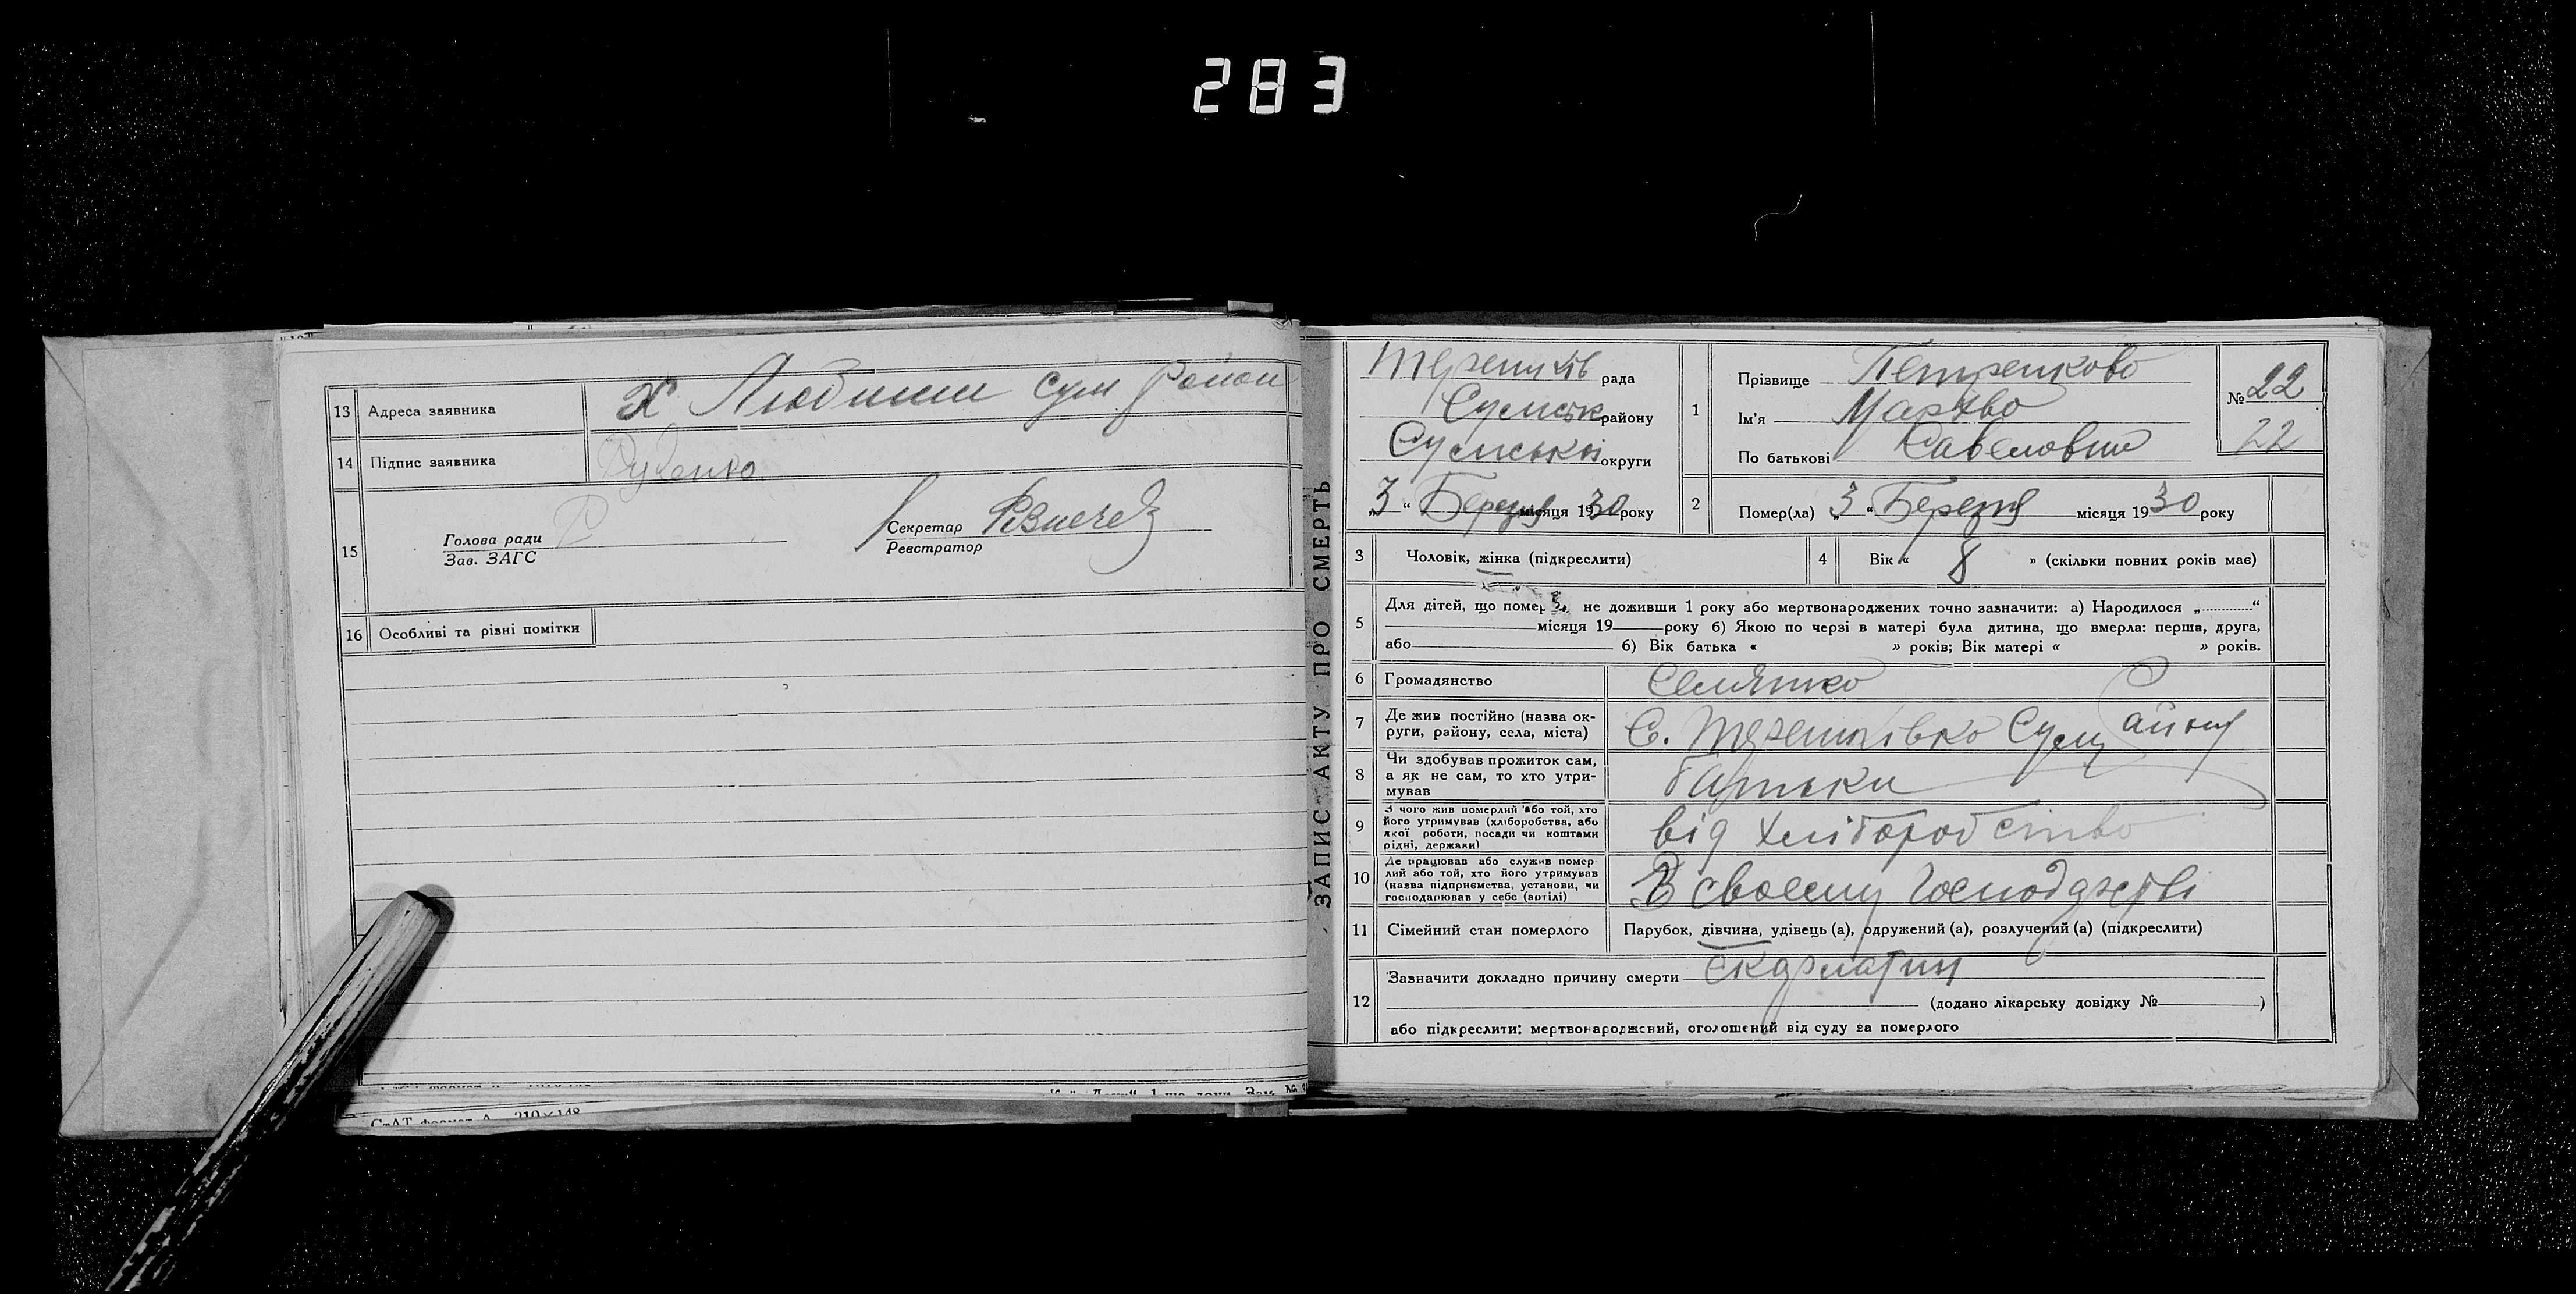 283
13 Адреса заявника Х Людини сум район
14 Підпис заявника Руденко.
15 Голова ради Секретар
Зав. ЗАГС Реєстратор
16 Особливі та різні помітки
СтАТ формат А 210×148
ЗАПИС АКТУ ПРО СМЕРТЬ
Терешків рада
Сумськ району
Сумської округи
„3“ Березня місяця 1930 року
1 Прізвище Петренково
Ім'я Мархво
По батькові Савеловна
№ 22
22
2 Помер(ла) „3“ Березня місяця 1930 року
3 Чоловік, жінка (підкреслити)
4 Вік « 8 » (скільки повних років має)
5 Для дітей, що померли, не доживши 1 року або мертвонароджених точно зазначити: а) Народилося „............“
місяця 19 року б) Якою по черзі в матері була дитина, що вмерла: перша, друга,
або б) Вік батька « » років; Вік матері « » років.
6 Громадянство Селянко
7 Де жив постійно (назва округи, району, села, міста) С. Терешківко Сум Району
8 Чи здобував прожиток сам,
а як не сам, то хто утри-
мував батьки
9 З чого жив померлий або той, хто
його утримував (хліборобства, або
якої роботи, посади чи коштами
рідні, держави) від хліборобство
10 Де працював або служив помер
лий або той, хто його утримував
(назва підприємства, установи, чи
господарював у себе (артілі) В своєму господарстві
11 Сімейний стан померлого Парубок, дівчина, удівець (а), одружений (а), розлучений (а) (підкреслити)
12 Зазначити докладно причину смерти скарлатин
(додано лікарську довідку № )
або підкреслити: мертвонароджений, оголошений від суду за померлого